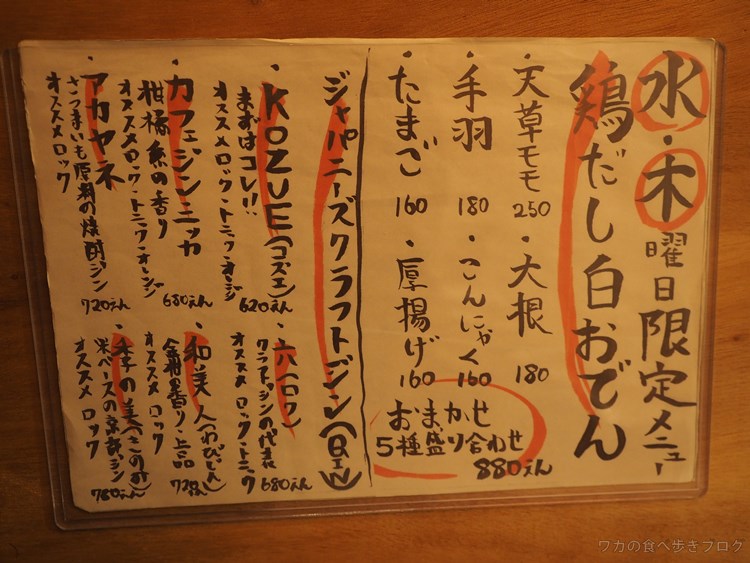 水・木曜日限定メニュー
鶏だし白おでん
・天草モモ 250
・大根 180
・手羽 180
・こんにゃく 160
・たまご 160
・厚揚げ 160
おまかせ
5種盛り合わせ
880えん
ジャパニーズクラフトジン(GIN)
・KOZUE(コズエ)
まずはコレ!!
オススメロック・トニック・オレンジ
620えん
・六(ロク)
クラフトジンの代表
オススメ ロック・トニック
680えん
・カフェジンニッカ
柑橘系の香り
オススメロック・トニック・オレンジ
680えん
・和美人(わびじん)
金柑の香り/上品
オススメ ロック
720えん
・アカヤネ
さつまいも原料の焼酎ジン
オススメロック
720えん
・季の美(きのみ)
米ベースの京都ジン
オススメ ロック
780えん
ワカの食べ歩きブログ